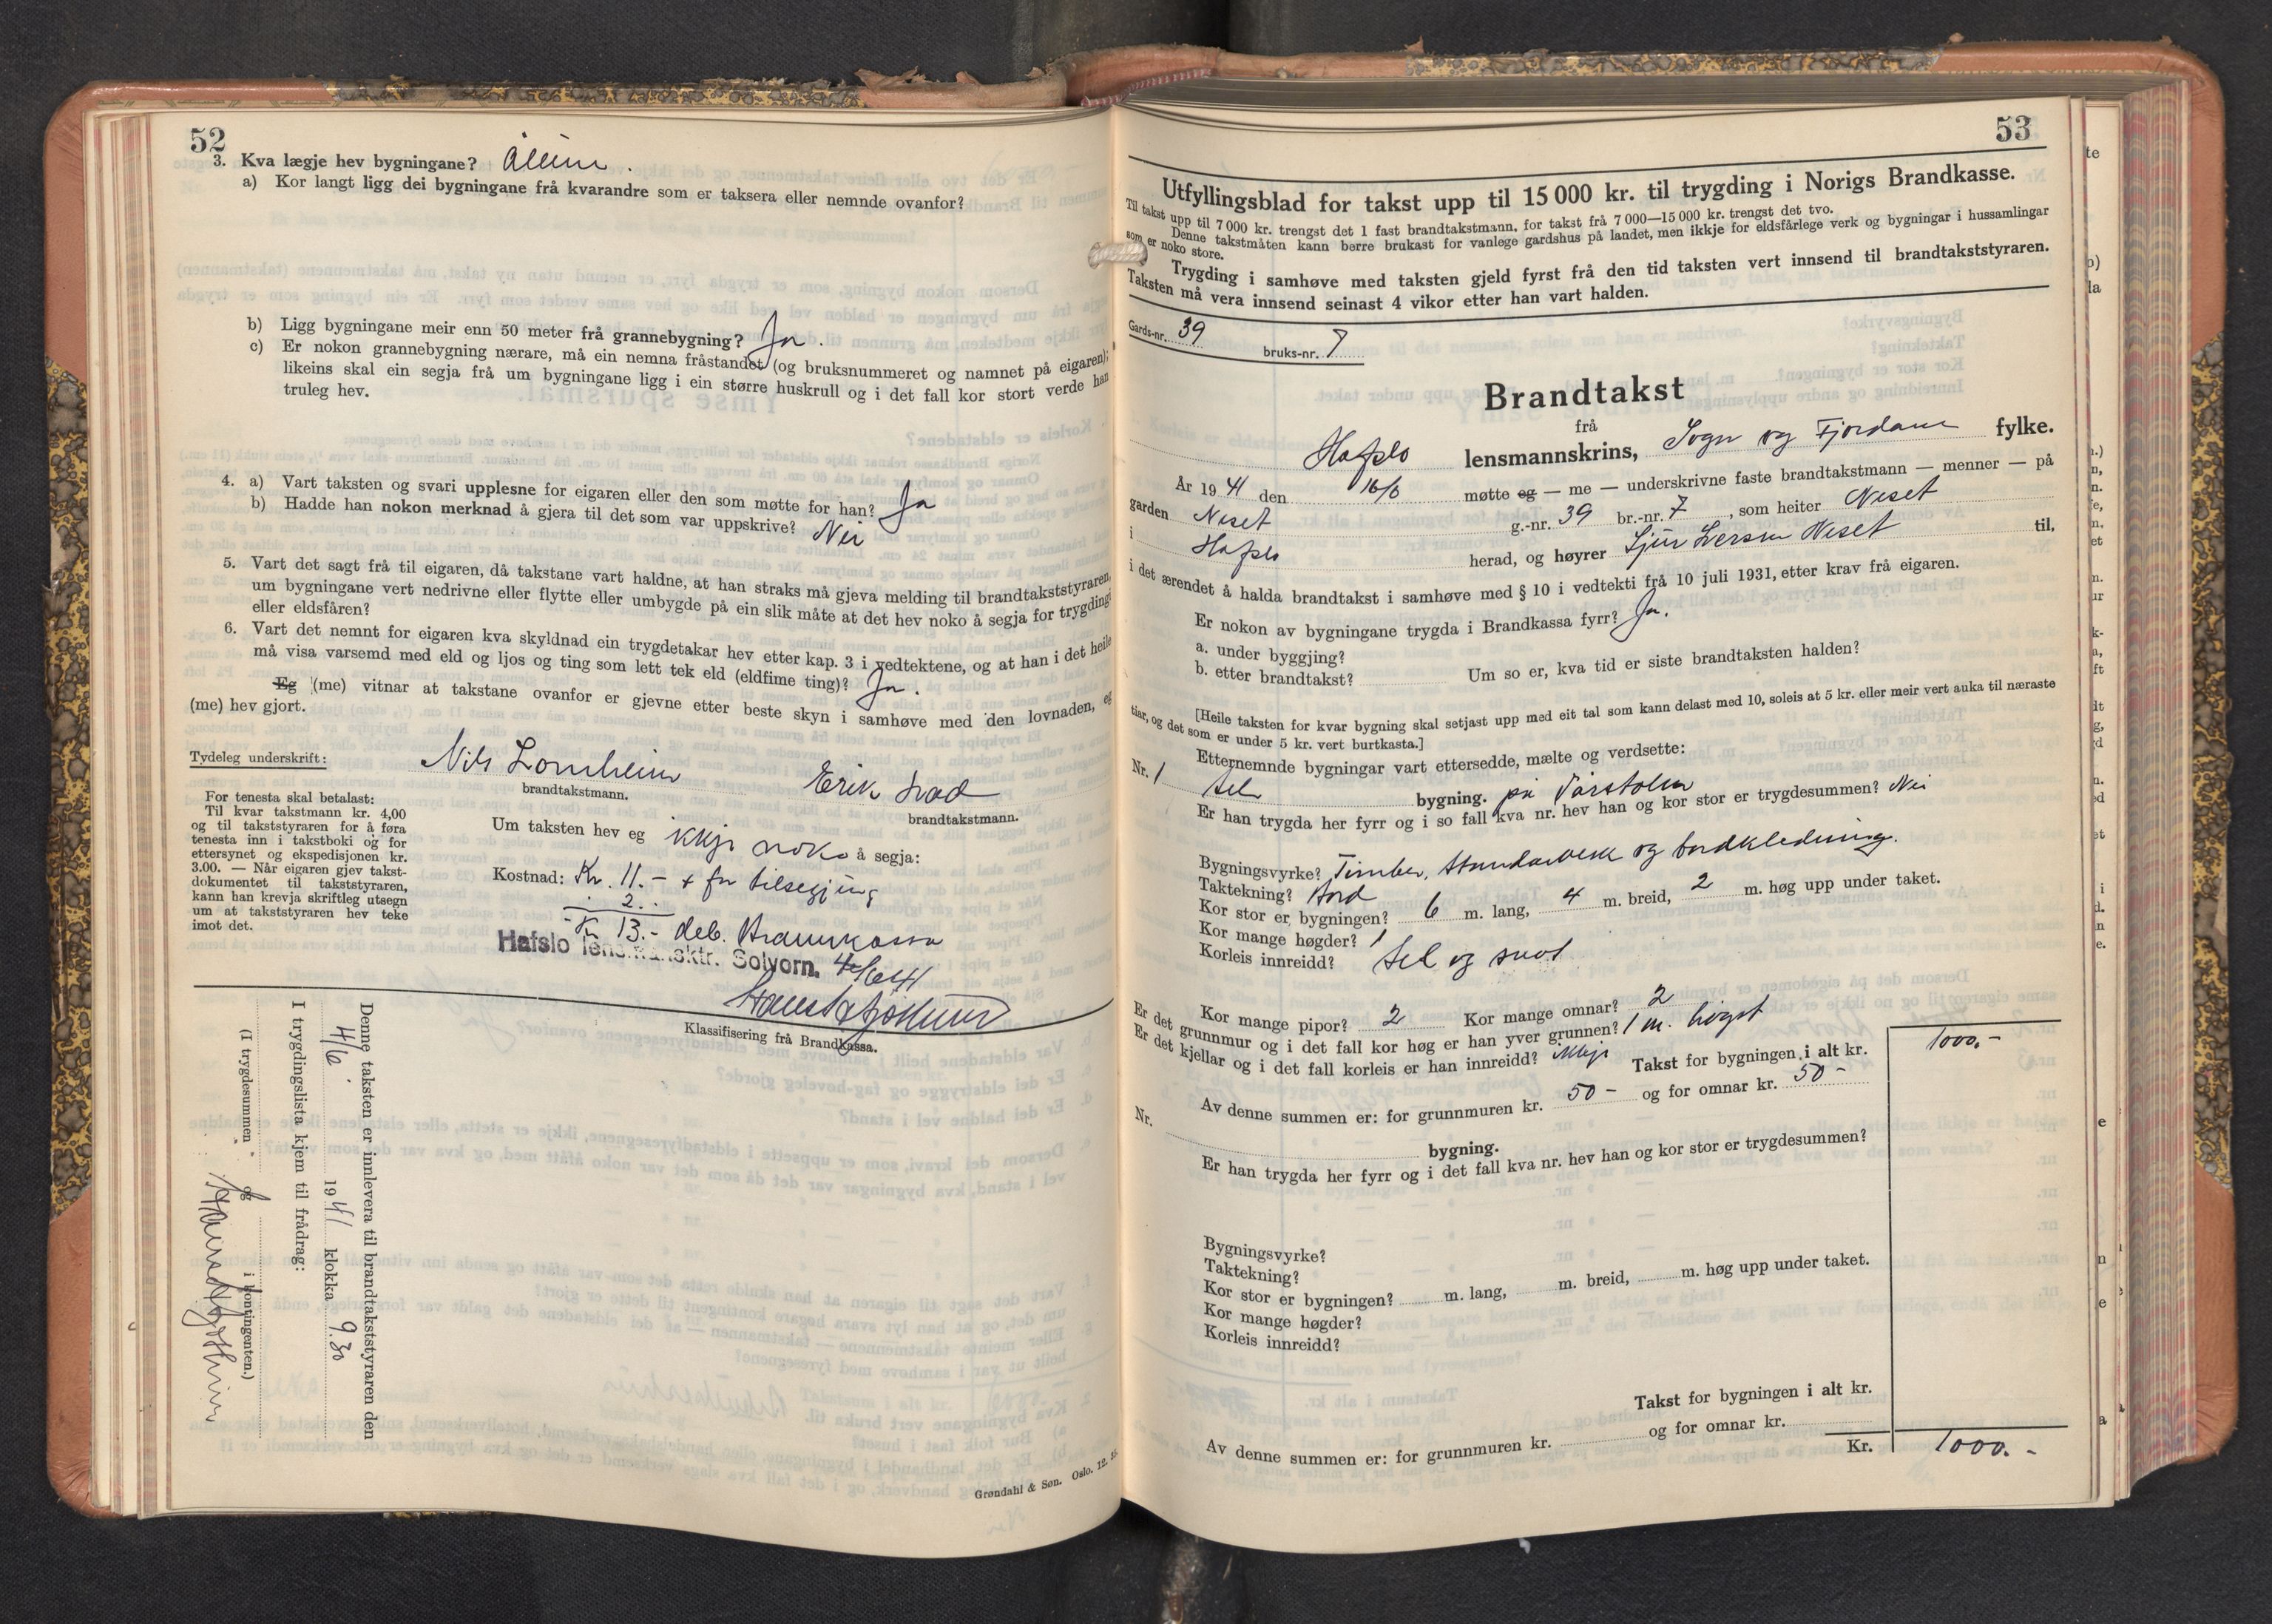 52
3. Kva lægje hev bygningane? Åleine.
a) Kor langt ligg dei bygningane frå kvarandre som er taksera eller nemnde ovanfor?
b) Ligg bygningane meir enn 50 meter frå grannebygning? Ja.
c) Er nokon grannebygning nærare, må ein nemna fråstandet (og bruksnummeret og namnet på eigaren);
likeins skal ein segja frå um bygningane ligg i ein større huskrull og i det fall kor stort verde han
truleg hev.
4. a) Vart taksten og svari upplesne for eigaren eller den som møtte for han? Ja
b) Hadde han nokon merknad å gjera til det som var uppskrive? Nei
5. Vart det sagt frå til eigaren, då takstane vart haldne, at han straks må gjeva melding til brandtakststyraren,
um bygningane vert nedrivne eller flytte eller umbygde på ein slik måte at det hev noko å segja for trygdingi
eller eldsfåren?
6. Vart det nemnt for eigaren kva skyldnad ein trygdetakar hev etter kap. 3 i vedtektene, og at han i det heile
må visa varsemd med eld og ljos og ting som lett tek eld (eldfime ting)? Ja.
Eg (me) vitnar at takstane ovanfor er gjevne etter beste skyn i samhøve med den lovnaden, eg
(me) hev gjort.
Tydeleg underskrift: Nils Lomheim Erik
brandtakstmann. brandtakstmann.
For tenesta skal betalast:
Til kvar takstmann kr. 4,00
og til takststyraren for å føra
tenesta inn i takstboki og for
ettersynet og ekspedisjonen kr.
3.00. — Når eigaren gjev takst-
dokumentet til takststyraren,
kann han krevja skriftleg utsegn
um at takststyraren hev teke
imot det.
Um taksten hev eg ikkje noko å segja:
Kostnad: Kr. 11.- + for tilsegjing
2..
Kr 13.- deb. Brannkassa
Hafslo lensmansktr. Solvorn. 4/6 41
Klassifisering frå Brandkassa.
Denne taksten er innlevera til brandtakststyraren den
4/6. 1941 klokka 9.30
I trygdingslista kjem til frådrag:
(I trygdesummen og i kontingenten.)
Grøndahl & Søn. Oslo. 12.
53
Utfyllingsblad for takst upp til 15 000 kr. til trygding i Norigs Brandkasse.
Til takst upp til 7 000 kr. trengst det 1 fast brandtakstmann, for takst frå 7 000—15 000 kr. trengst det tvo.
Denne takstmåten kann berre brukast for vanlege gardshus på landet, men ikkje for eldsfårlege verk og bygningar i hussamlingar
som er noko store.
Trygding i samhøve med taksten gjeld fyrst frå den tid taksten vert innsend til brandtakststyraren.
Taksten må vera innsend seinast 4 vikor etter han vart halden.
Gards-nr. 39 bruks-nr. 7
Brandtakst
frå
Hafslo lensmannskrins, Sogn og Fjordane fylke.
År 1941 den 16/5 møtte eg — me — underskrivne faste brandtakstmann — menner — på
garden Neset g.-nr. 39 br.-nr. 7, som heiter Neset
i Hafslo herad, og høyrer Sjur Larsen Neset til,
i det ærendet å halda brandtakst i samhøve med § 10 i vedtekti frå 10 juli 1931, etter krav frå eigaren.
Er nokon av bygningane trygda i Brandkassa fyrr? Ja.
a. under byggjing?
b. etter brandtakst? Um so er, kva tid er siste brandtaksten halden?
[Heile taksten for kvar bygning skal setjast upp med eit tal som kann delast med 10, soleis at 5 kr. eller meir vert auka til næraste
tiar, og det som er under 5 kr. vert burtkasta.]
Etternemnde bygningar vart ettersedde, mælte og verdsette:
Nr. 1 Sel bygning. på
Er han trygda her fyrr og i so fall kva nr. hev han og kor stor er trygdesummen? Nei
Bygningsvyrke? Timber, standarverk og bordkledning.
Taktekning? Bord
Kor stor er bygningen? 6 m. lang, 4 m. breid, 2 m. høg upp under taket.
Kor mange høgder? 1
Korleis innreidd? Sel og
Kor mange pipor? 2 Kor mange omnar? 2
Er det grunnmur og i det fall kor høg er han yver grunnen? 1 m. høgst
Er det kjellar og i det fall korleis er han innreidd? ikkje
Takst for bygningen i alt kr. 1000.-
Av denne summen er: for grunnmuren kr. 50 - og for omnar kr. 50 -
Nr. bygning.
Er han trygda her fyrr og i det fall kva nr. hev han og kor stor er trygdesummen?
Bygningsvyrke?
Taktekning?
Kor stor er bygningen? m. lang, m. breid, m. høg upp under taket.
Kor mange høgder?
Korleis innreidd?
Takst for bygningen i alt kr.
Av denne summen er: for grunnmuren kr. og for omnar kr.
Kr. 1000.-